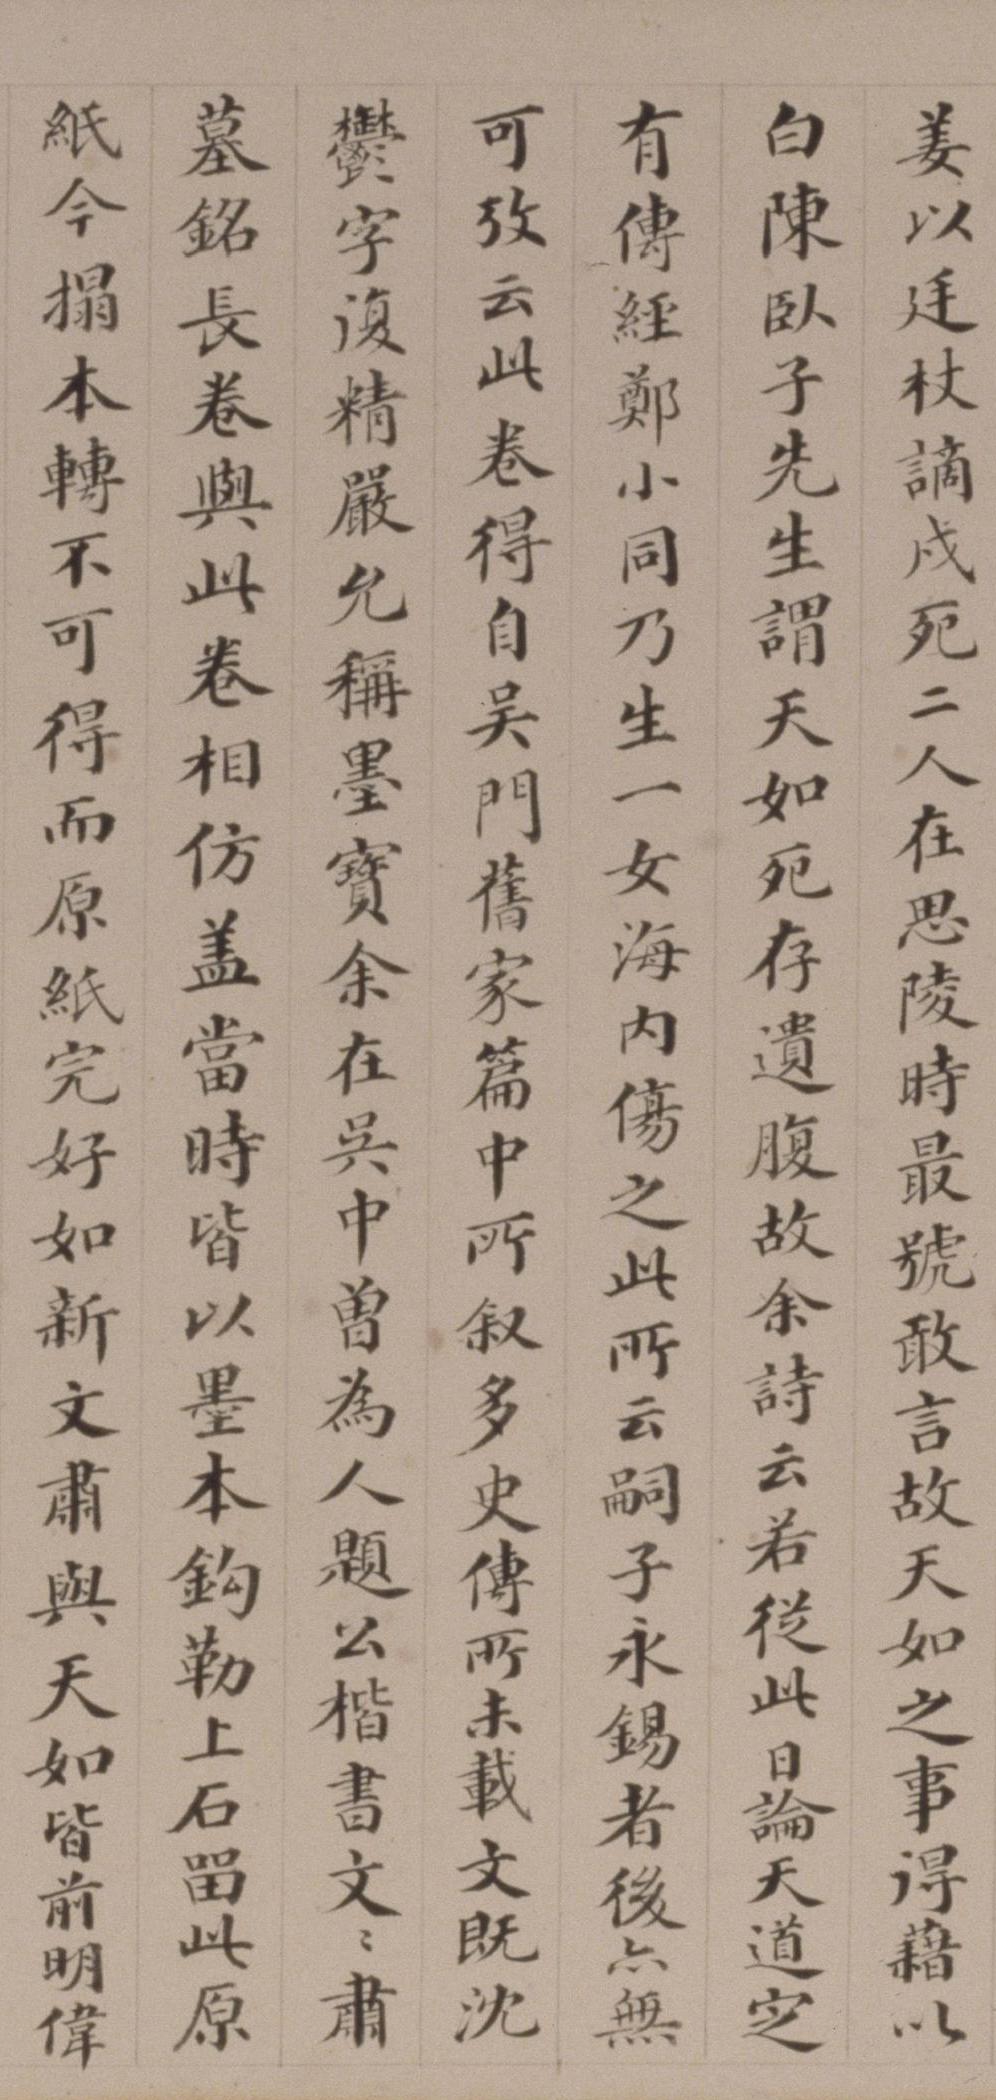 姜以廷杖謫戍死二人在思陵時最號敢言故天如之事得藉以
白陳臥子先生謂天如死存遺腹故余詩云若從此日論天道定
有傳經鄭小同乃生一女海内傷之此所云嗣子永錫者後亦無
可攷云此卷得自吴門舊家篇中所叙多史傳所未載文既沈
鬱字復精嚴允稱墨寶余在吳中曽為人題公楷書文〻肅
墓銘長卷與此卷相仿盖當時皆以墨本鈎勒上石留此原
紙今搨本轉不可得而原紙完好如新文肅與天如皆前明偉